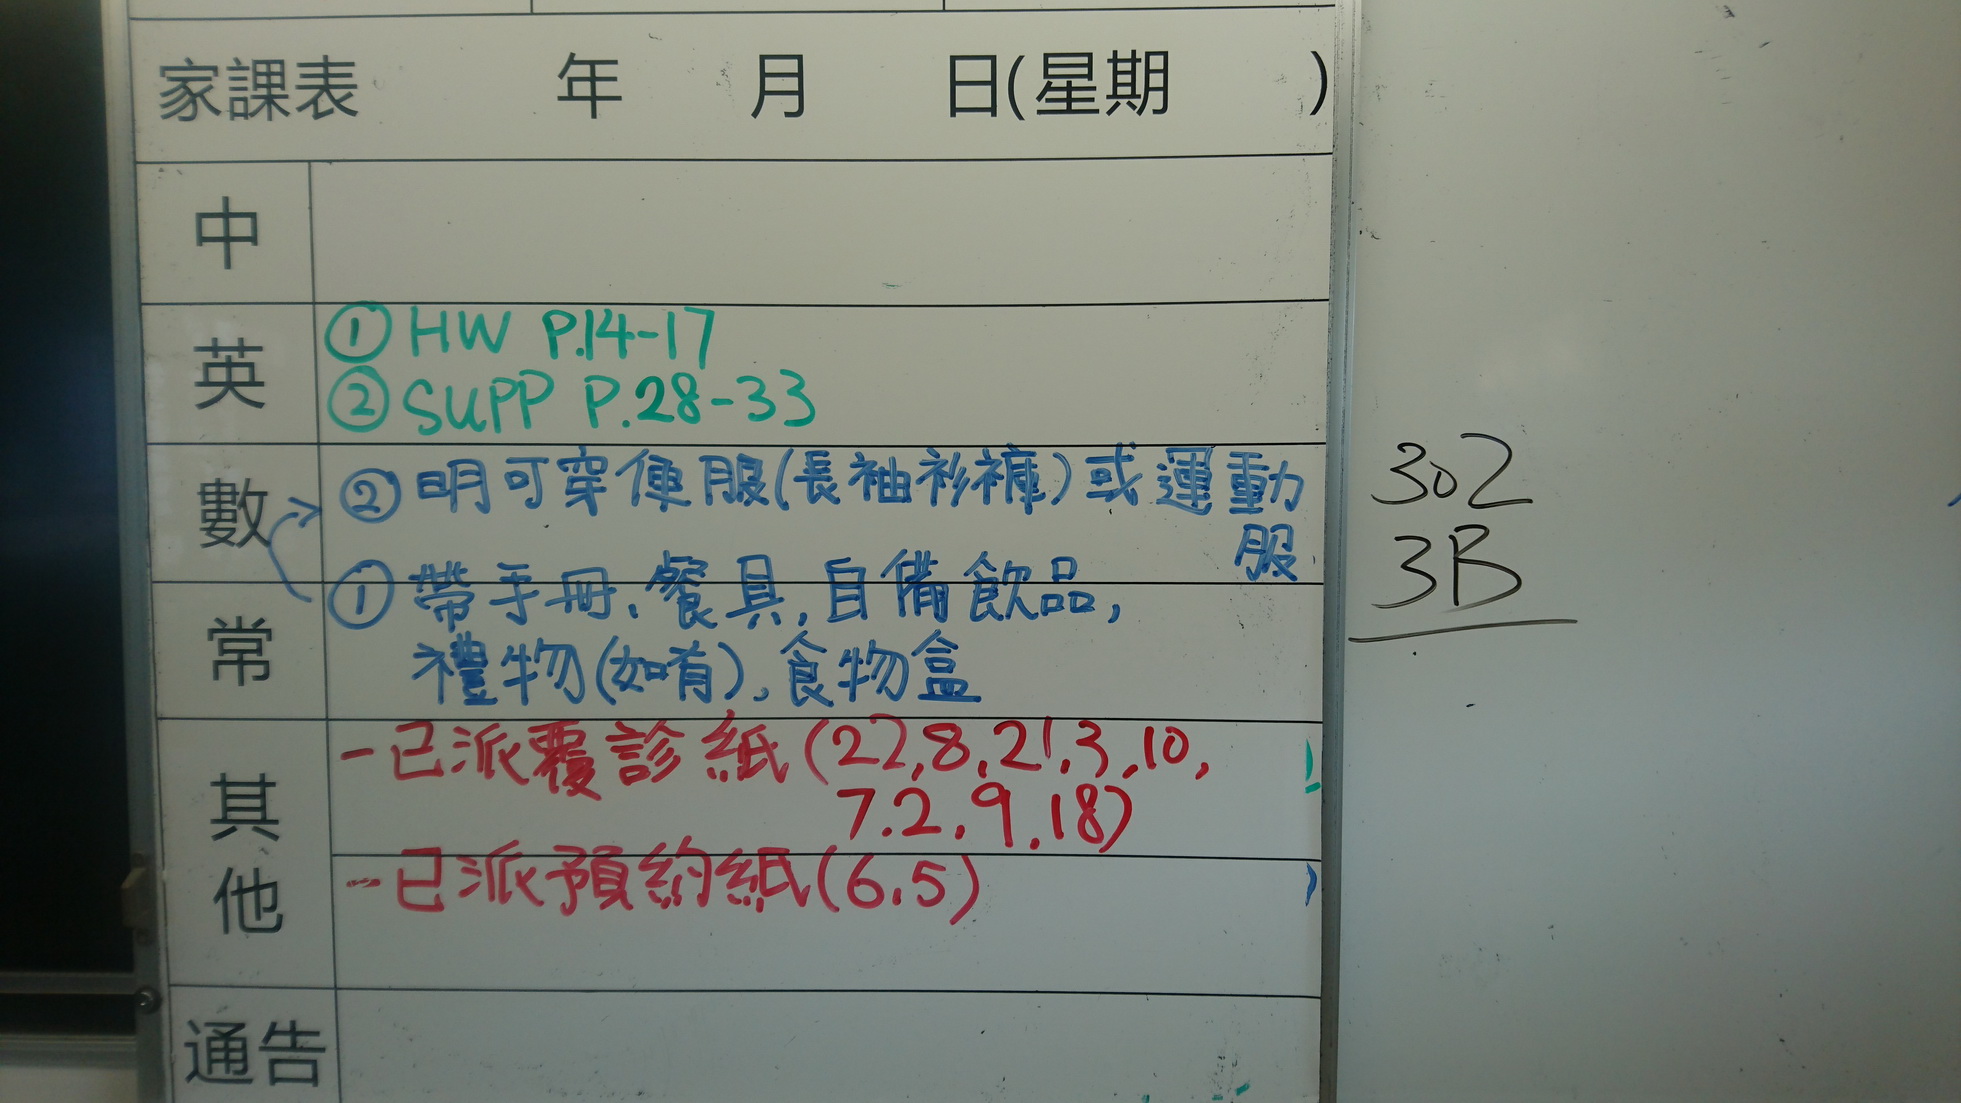 家課表 年 月 日(星期 )
中
英
① HW P.14-17
② SUPP P.28-33
數
② 明可穿便服(長袖衫褲)或運動
服
常
① 帶手冊、餐具,自備飲品,
禮物(如有)、食物盒
其他
-已派覆診紙(22,8,21,3,10,
7.2.9.18)
-已派預約紙(6.5)
通告
302
3B